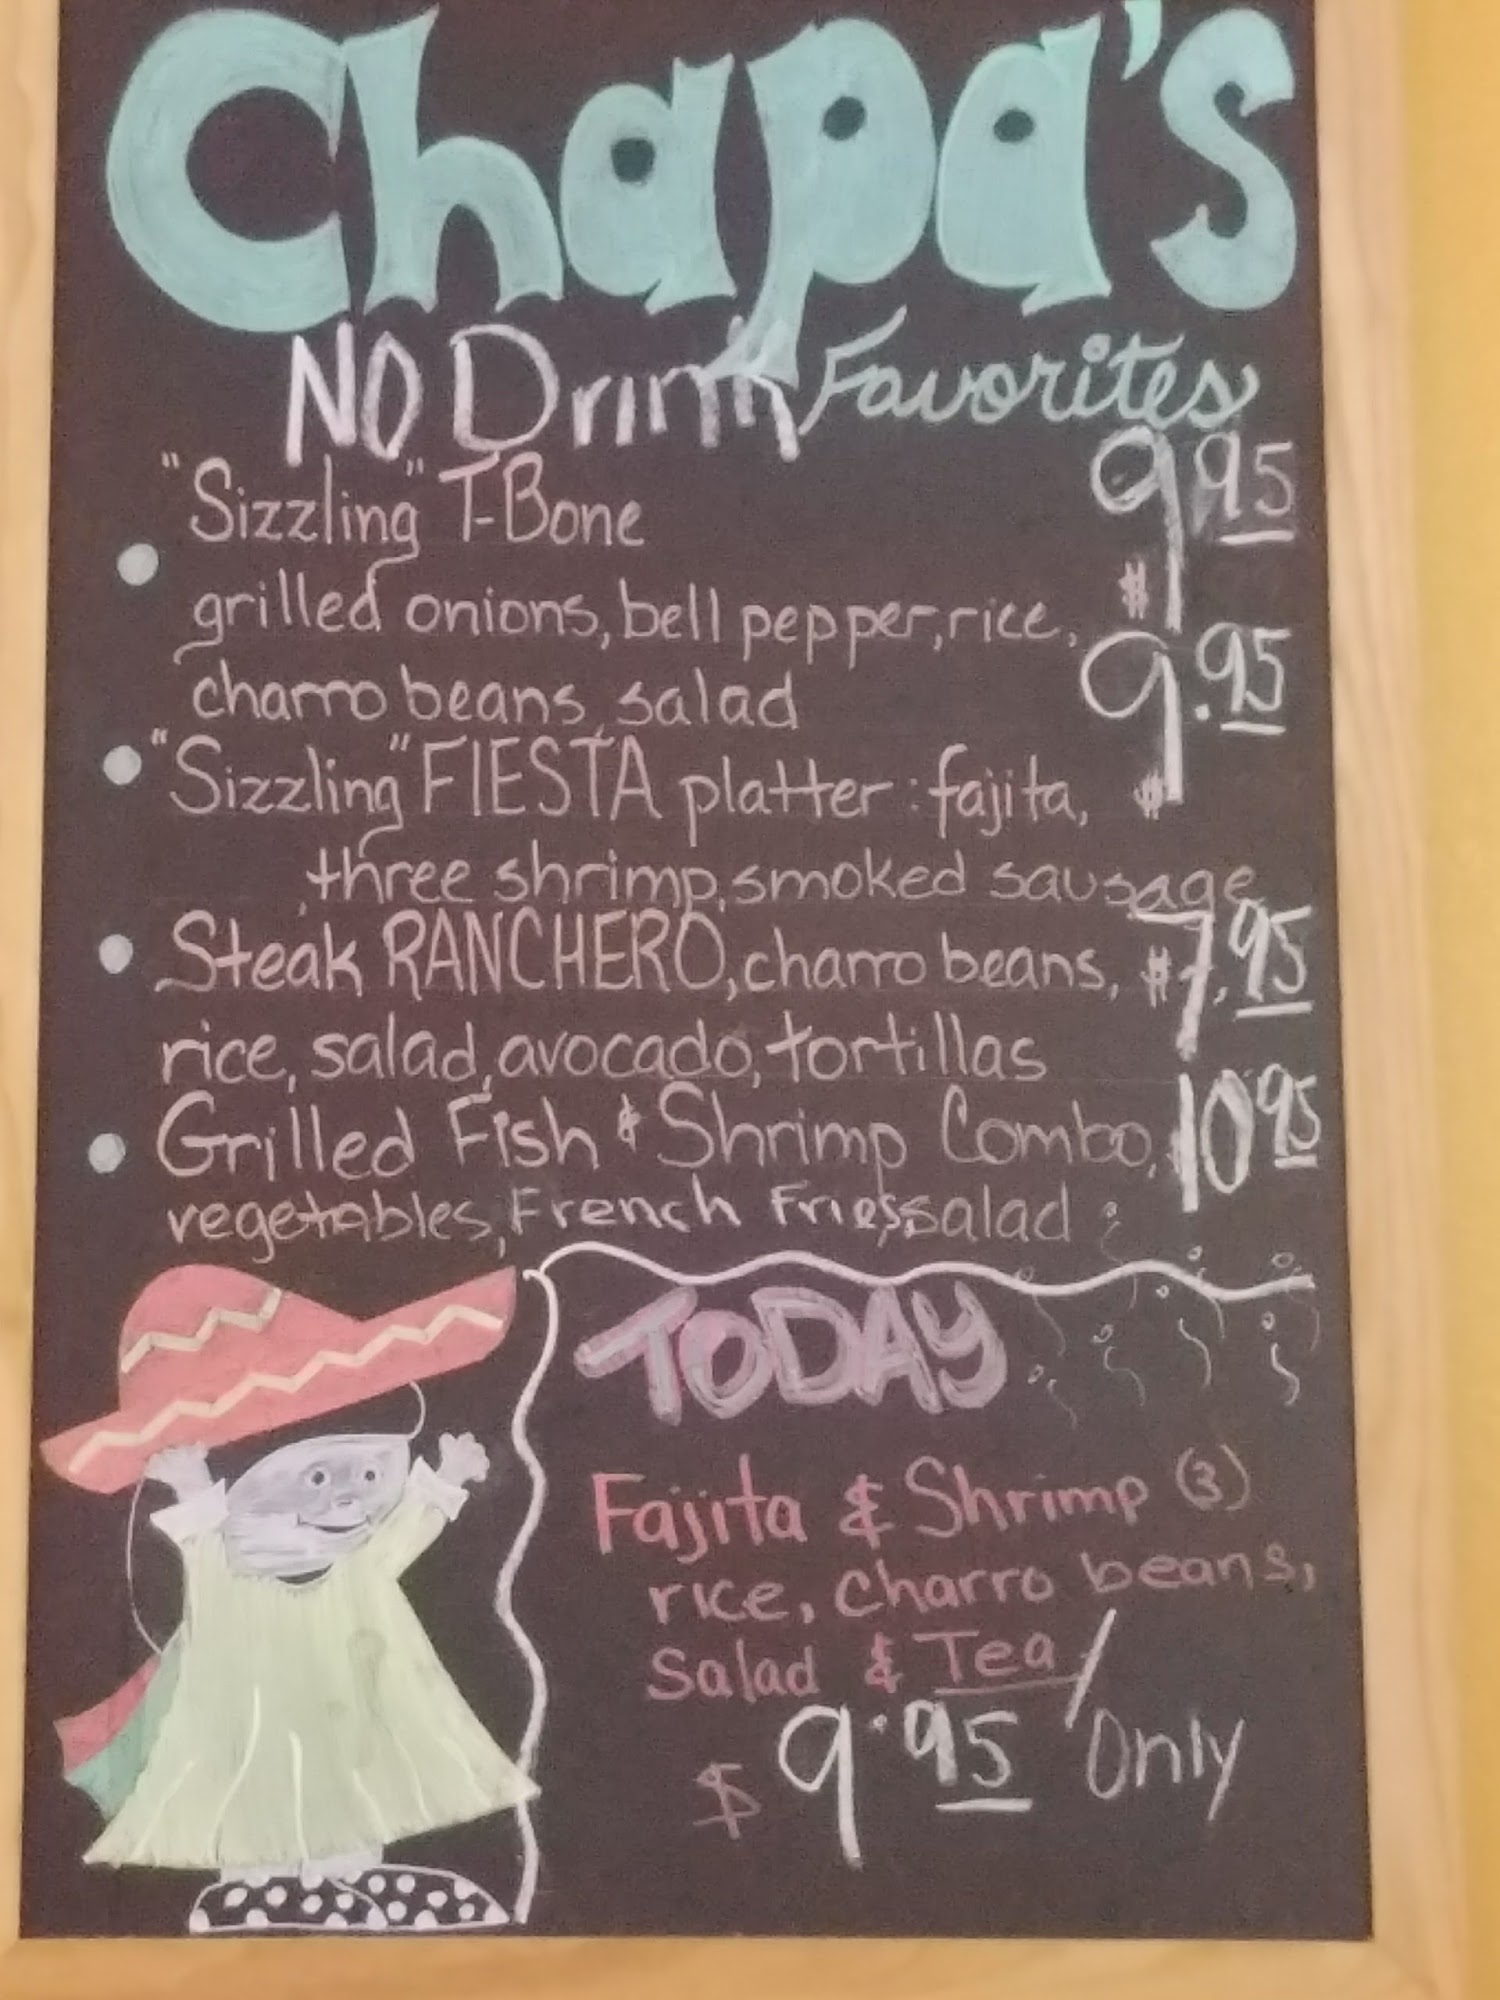 Chapa's
NO Drink Favorites
"Sizzling" T-Bone 9 95
grilled onions, bell pepper, rice, $
charro beans, salad 9.95
"Sizzling" FIESTA platter: fajita, $
three shrimp, smoked sausage
Steak RANCHERO, charro beans, $7.95
rice, salad, avocado, tortillas
Grilled Fish & Shrimp Combo, 10 95
vegetables, French Fries, salad
TODAY
Fajita & Shrimp (3)
rice, charro beans,
Salad & Tea /
$ 9.95 Only